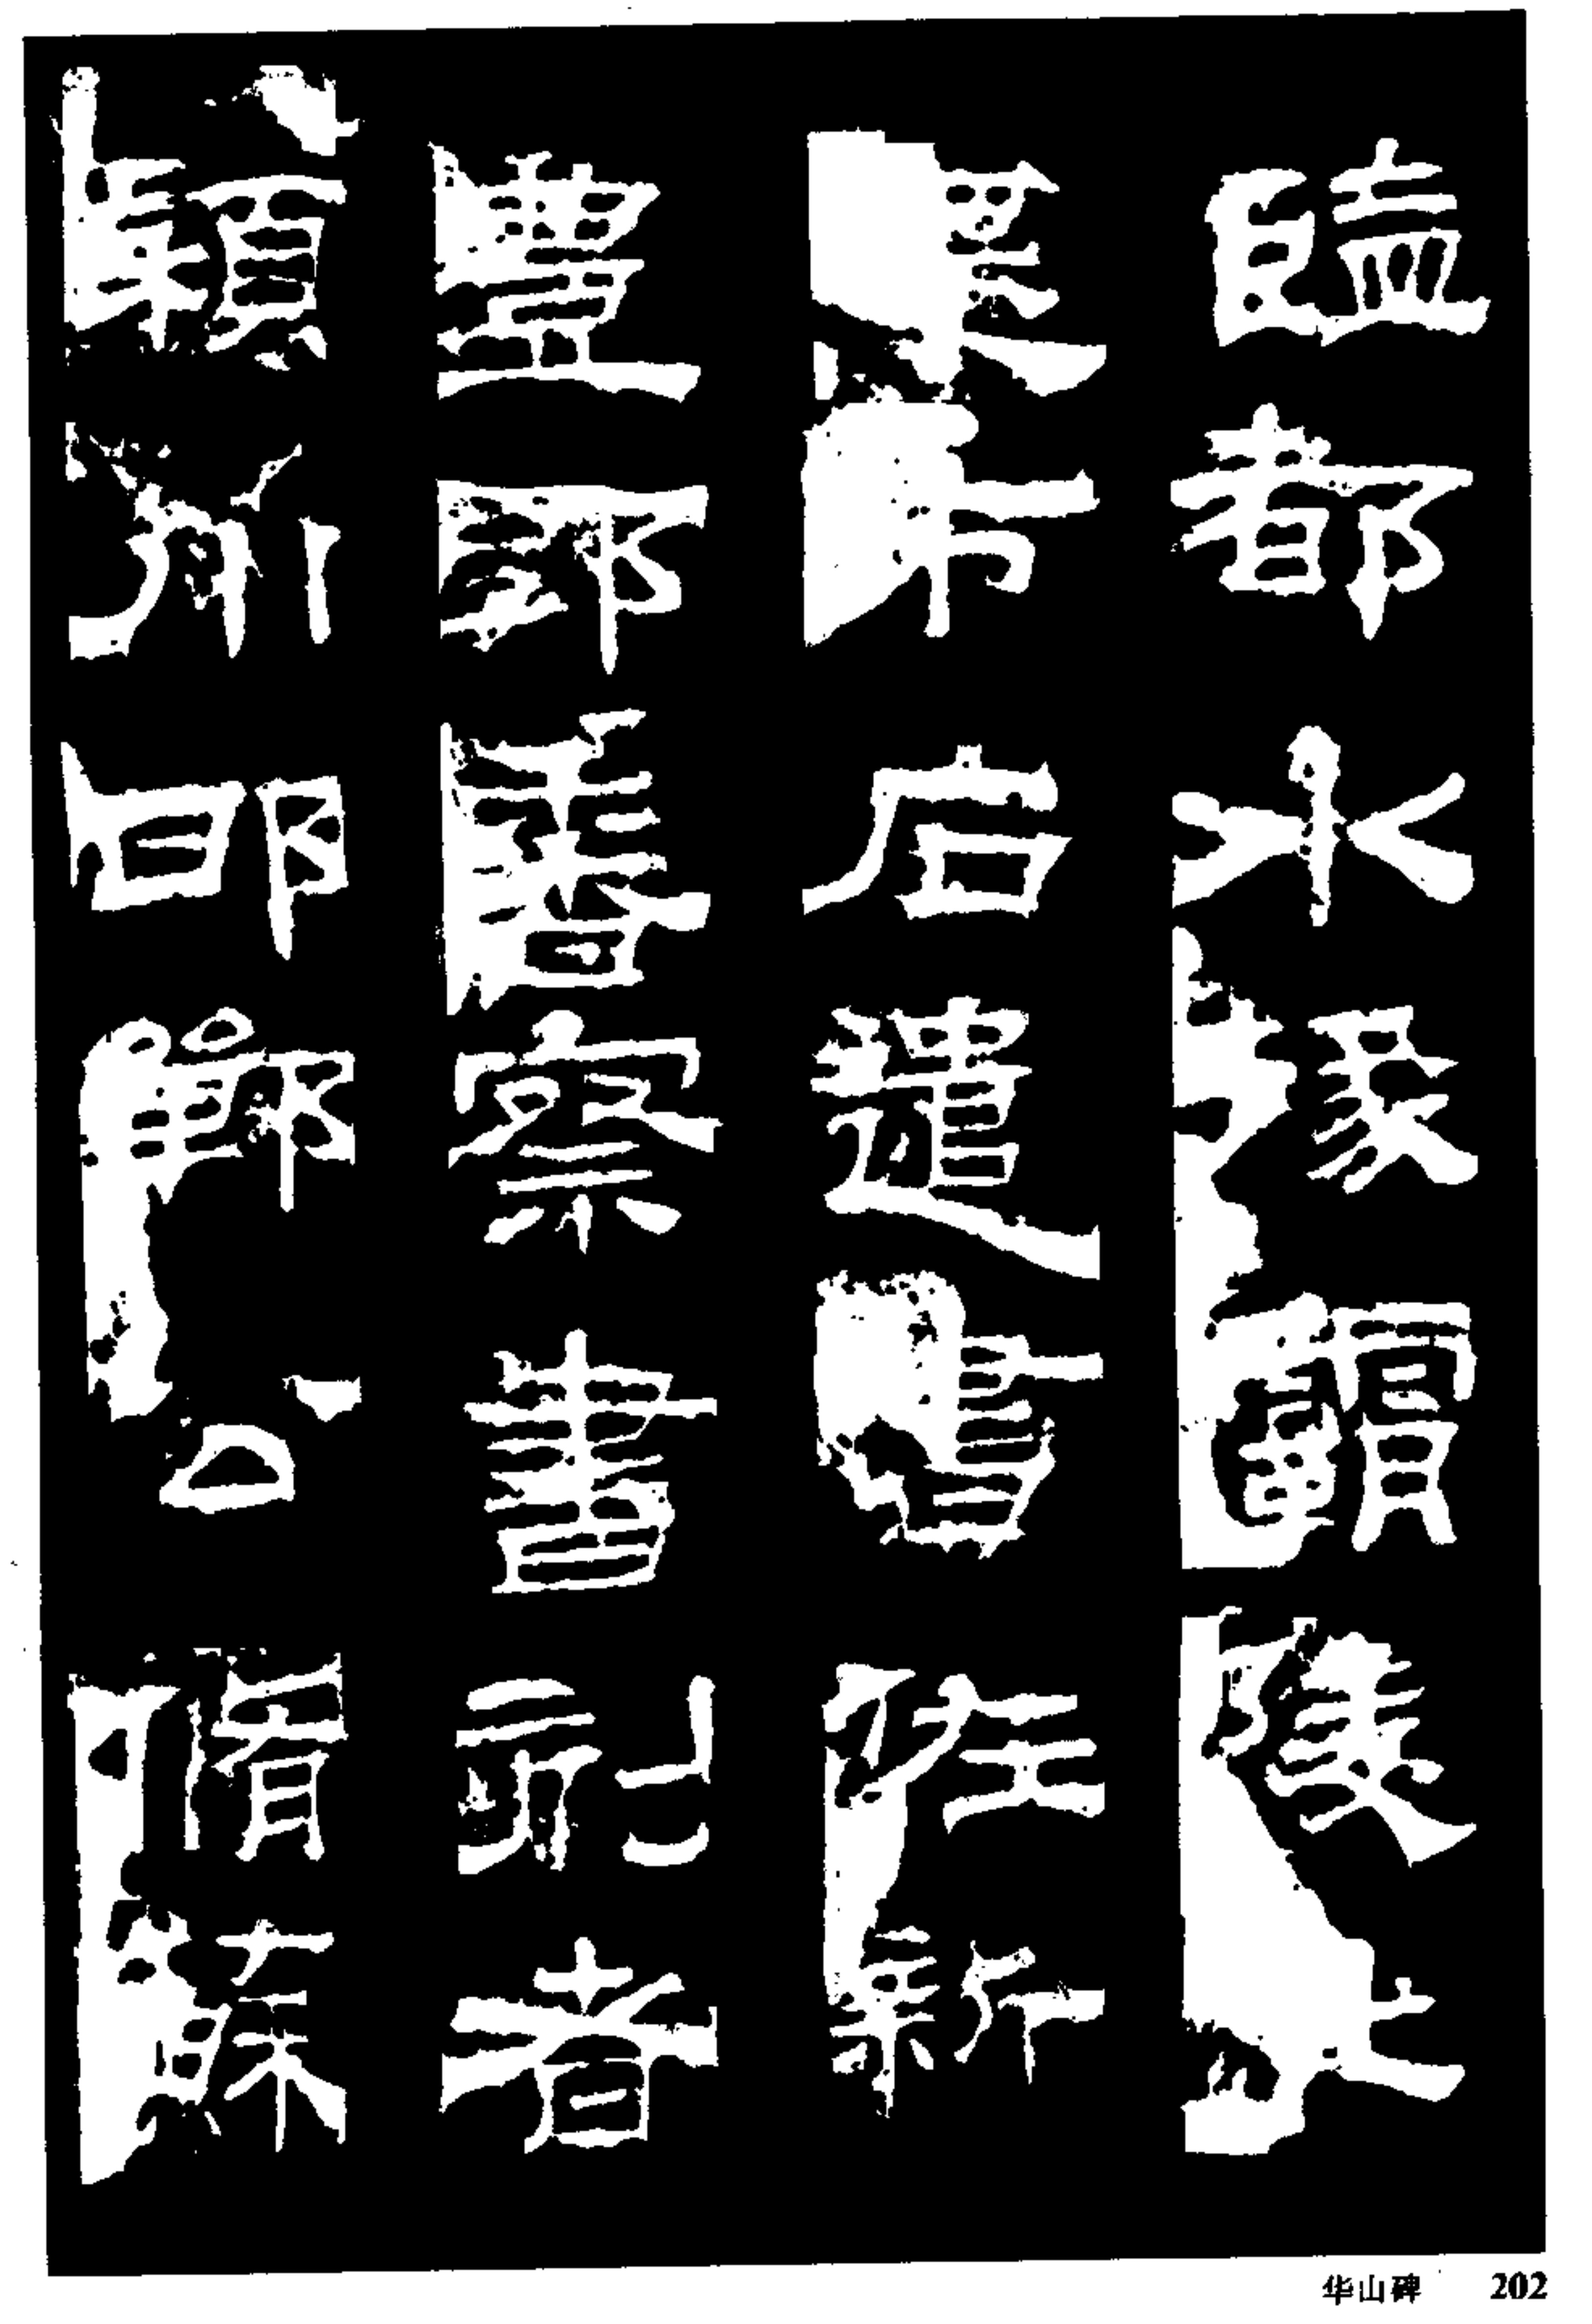 監都水掾霸陵杜
遷市石遣書佐新
豐郭香察書刻者
潁川邯鄲公脩蘇
华山碑 202